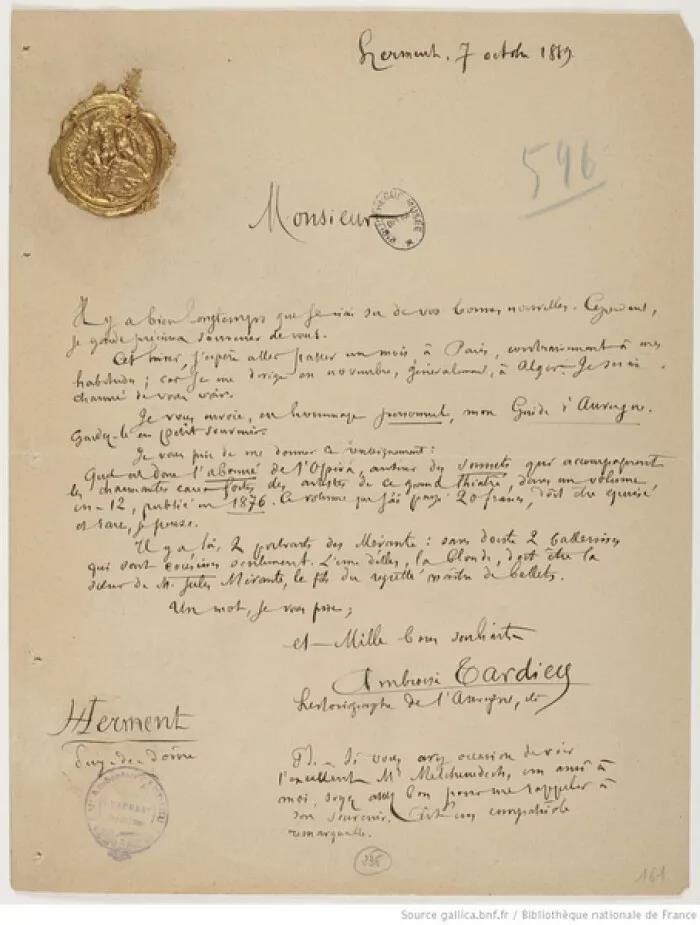 Herment, 7 octobre 1889.
596
Monsieur
BIBLIOTHEQUE MUSÉE
Il y a bien longtemps que je n'ai su de vos bonnes nouvelles. Cependant,
je garde précieux souvenir de vous.
Cet hiver, j'espère aller passer un mois, à Paris, contrairement à mes
habitudes ; car je me dirige en novembre, généralement, à Alger. Je serai
charmé de vous voir.
Je vous envoie, en hommage personnel, mon Guide d'Auvergne.
Gardez-le en petit souvenir.
Je vous prie de me donner ce renseignement :
Quel est donc l'abonné de l'Opéra, auteur des sonnets qui accompagnent
les charmantes eaux fortes des artistes de ce grand théâtre, dans un volume,
in-12, publié en 1876. Ce volume que j'ai payé 20 francs, doit être épuisé
et rare, je pense.
Il y a, là, 2 portraits des Mérante : sans doute 2 ballerines
qui sont cousines seulement. L'une d'elles, la blonde, doit être la
sœur de M. Jules Mérante, le fils du regretté maître de ballets.
Un mot, je vous prie ;
et Mille bons souhaits
Ambroise Tardieu
historiographe de l'Auvergne,
Herment
Puy-de-Dôme
P.S. – Si vous avez occasion de voir
l'excellent Mr , un ami à
moi, soyez assez bon pour me rappeler à
son souvenir. C'est un compatriote
remarquable.
235
161
Source gallica.bnf.fr / Bibliothèque nationale de France